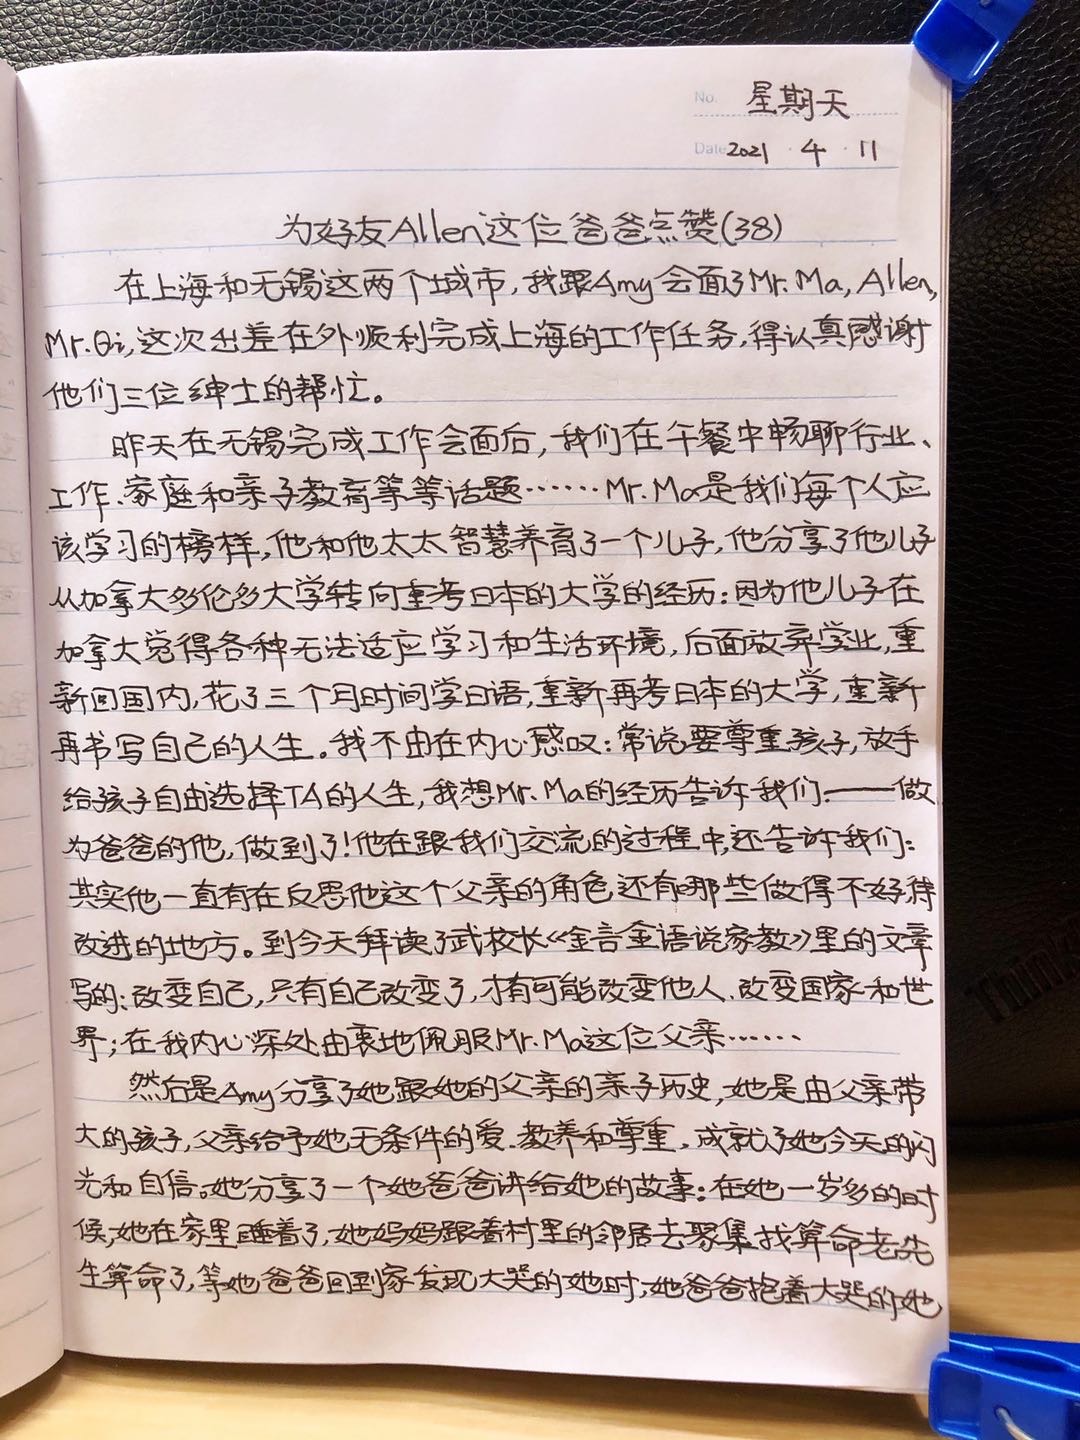 No. 星期天
Date 2021 · 4 · 11
为好友Allen这位爸爸点赞(38)
在上海和无锡这两个城市,我跟Amy会面了Mr. Ma, Allen,
Mr. Qi,这次出差在外顺利完成上海的工作任务,得认真感谢
他们三位绅士的帮忙。
昨天在无锡完成工作会面后,我们在午餐中畅聊行业、
工作、家庭和亲子教育等等话题……Mr. Ma是我们每个人应
该学习的榜样,他和他太太智慧养育了一个儿子,他分享了他儿子
从加拿大多伦多大学转向重考日本的大学的经历:因为他儿子在
加拿大觉得各种无法适应学习和生活环境,后面放弃学业,重
新回国内,花了三个月时间学日语,重新再考日本的大学,重新
再书写自己的人生。我不由在内心感叹:常说要尊重孩子,放手
给孩子自由选择TA的人生,我想Mr. Ma的经历告诉我们——做
为爸爸的他,做到了!他在跟我们交流的过程中,还告诉我们:
其实他一直有在反思他这个父亲的角色还有哪些做得不好,待
改进的地方。到今天拜读了武校长《金言金语说家教》里的文章
写的:改变自己,只有自己改变了,才有可能改变他人、改变国家和世
界;在我内心深处由衷地佩服Mr. Ma这位父亲……
然后是Amy分享了她跟她的父亲的亲子历史,她是由父亲带
大的孩子,父亲给予她无条件的爱、教养和尊重,成就了她今天的闪
光和自信。她分享了一个她爸爸讲给她的故事:在她一岁多的时
候,她在家里睡着了,她妈妈跟着村里的邻居去聚集找算命老先
生算命了,等她爸爸回到家发现大哭的她时,她爸爸抱着大哭的她